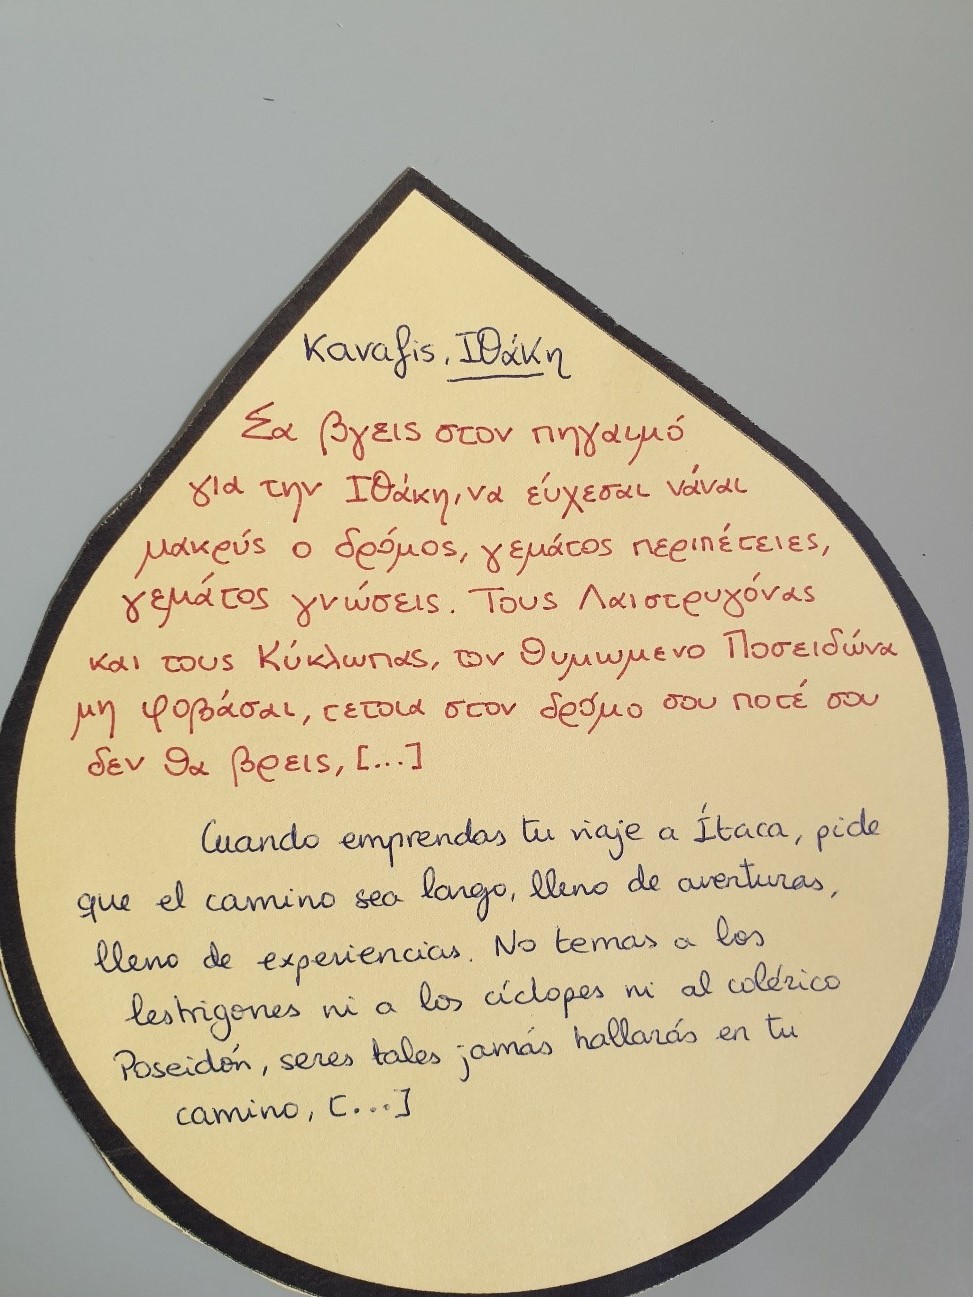 Kavafis, Ιθάκη
Σα βγεις στον πηγαιμό
για την Ιθάκη, να εύχεσαι νάναι
μακρύς ο δρόμος, γεμάτος περιπέτειες,
γεμάτος γνώσεις. Τους Λαιστρυγόνας
και τους Κύκλωπας, τον θυμωμενο Ποσειδώνα
μη φοβάσαι, τετοια στον δρόμο σου ποτέ σου
δεν θα βρεις, [...]
Cuando emprendas tu viaje a Ítaca, pide
que el camino sea largo, lleno de aventuras,
lleno de experiencias. No temas a los
lestrigones ni a los cíclopes ni al colérico
Poseidón, seres tales jamás hallarás en tu
camino, [...]